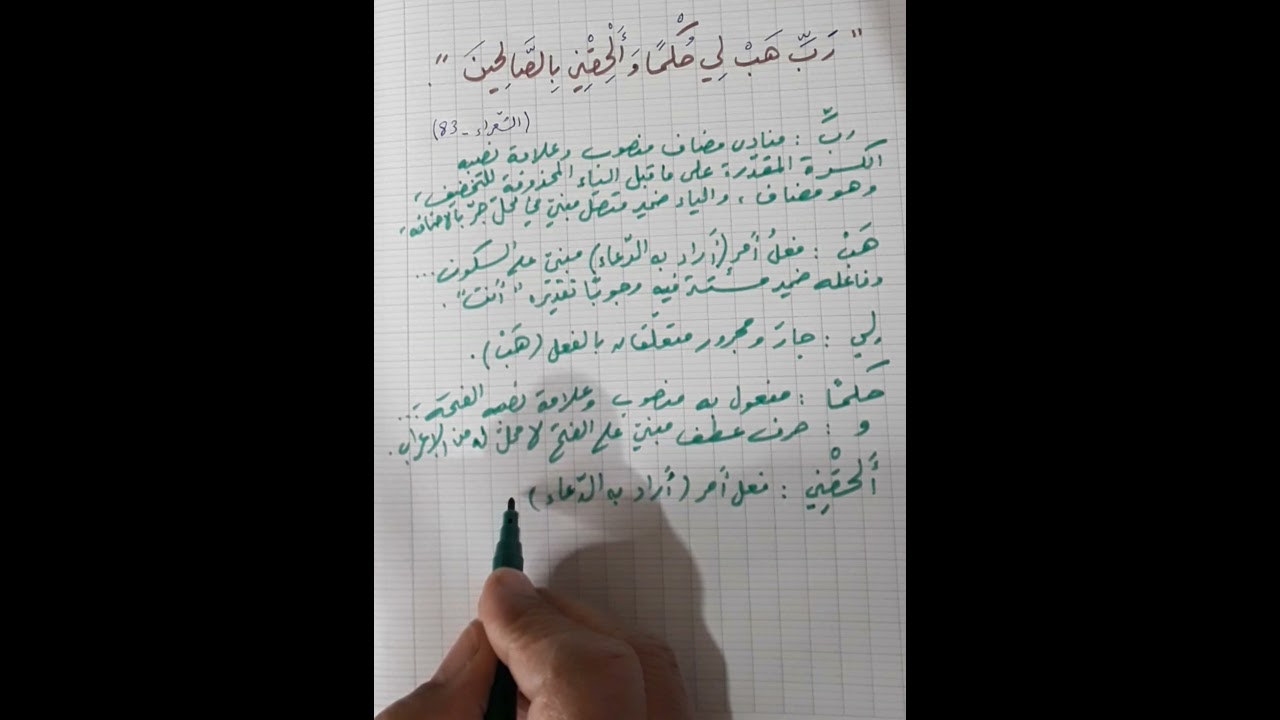 " رَبِّ هَبْ لِي حُكْمًا وَأَلْحِقْنِي بِالصَّالِحِينَ ".
(الشعراء - 83)
ربِّ : منادى مضاف منصوب وعلامة نصبه
الكسرة المقدّرة على ما قبل الياء المحذوفة للتخفيف،
وهو مضاف، والياء ضمير متصل مبنيّ في محل جرّ بالإضافة،
هَبْ : فعلُ أمر (أراد به الدّعاء) مبنيّ على السكون...
وفاعله ضمير مستتر فيه وجوبًا تقديره "أنت".
لي : جارّ ومجرور متعلّقان بالفعل (هَبْ).
حكمًا : مفعول به منصوب وعلامة نصبه الفتحة...
و : حرف عطف مبنيّ على الفتح لا محلّ له من الإعراب.
أَلحقْنِي : فعل أمر (أراد به الدّعاء)